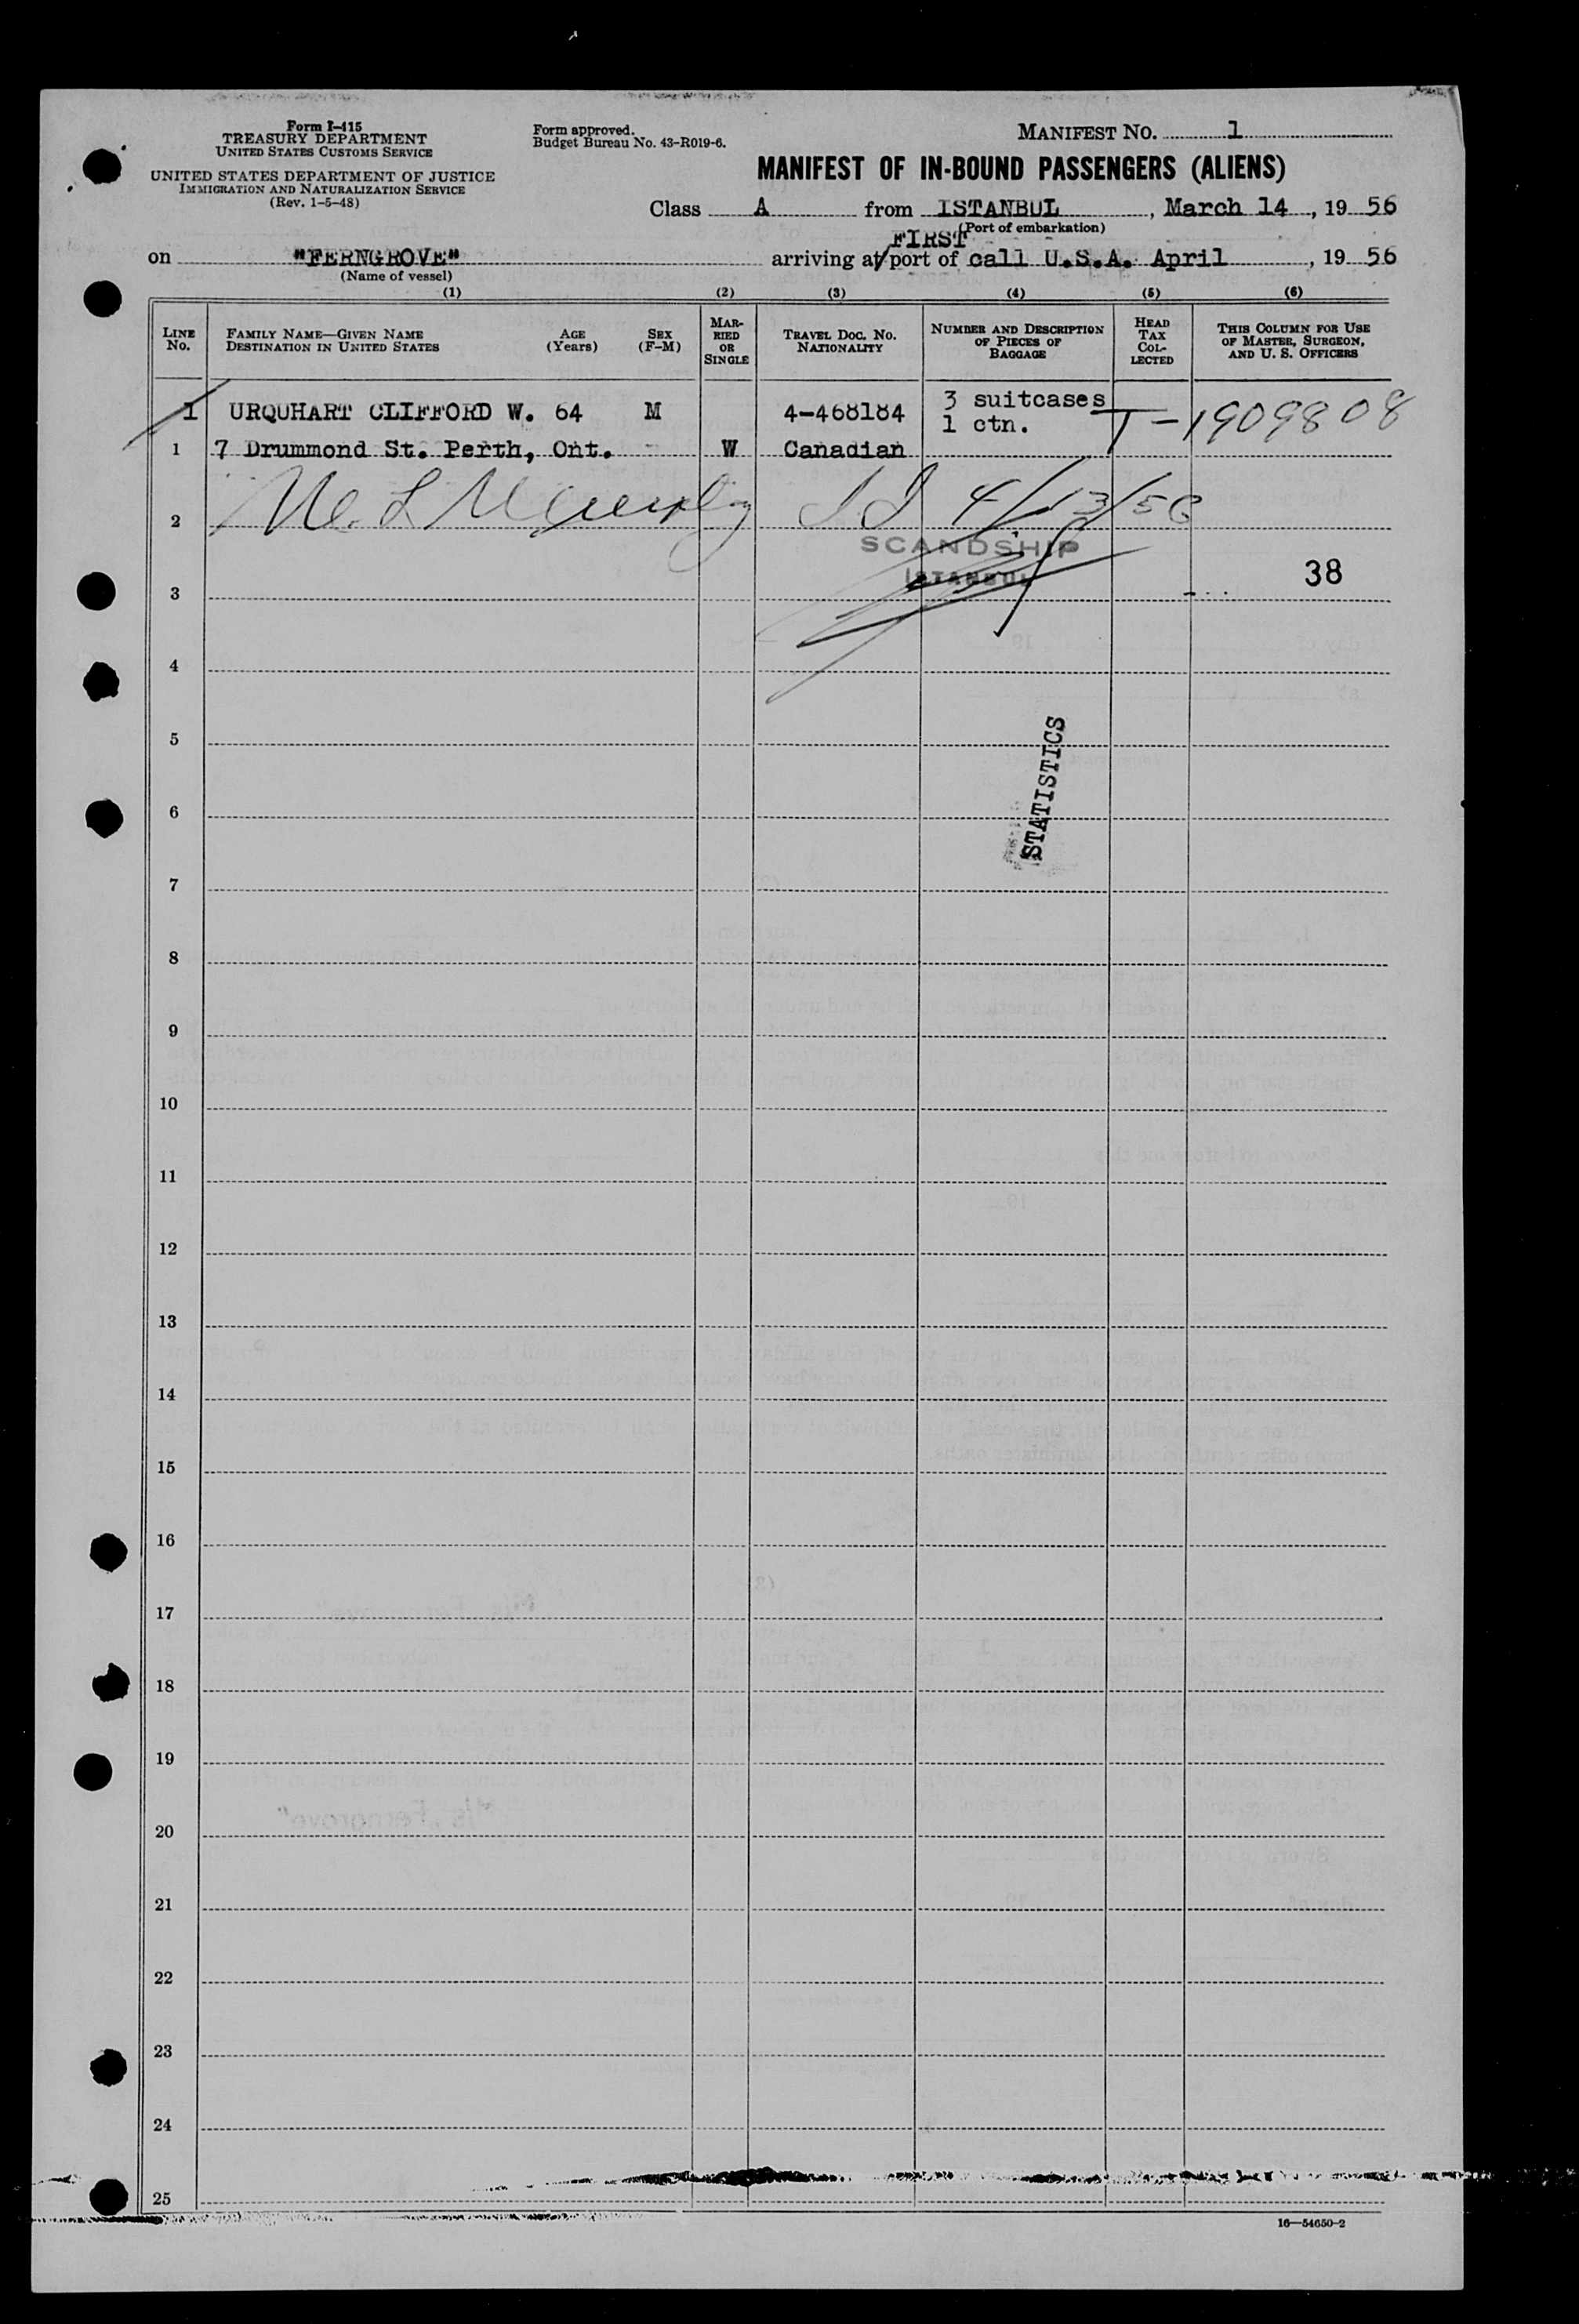 Form I-415
TREASURY DEPARTMENT
UNITED STATES CUSTOMS SERVICE
UNITED STATES DEPARTMENT OF JUSTICE
IMMIGRATION AND NATURALIZATION SERVICE
(Rev. 1-5-48)
Form approved.
Budget Bureau No. 43-R019-6.
MANIFEST NO. 1
MANIFEST OF IN-BOUND PASSENGERS (ALIENS)
Class A from ISTANBUL, March 14, 1956
(Port of embarkation)
FIRST
on "FERNGROVE" arriving at/port of call U.S.A. April, 1956
(Name of vessel)
(1) (2) (3) (4) (5) (6)
LINE No. FAMILY NAME—GIVEN NAME DESTINATION IN UNITED STATES AGE (Years) SEX (F-M) MARRIED OR SINGLE TRAVEL DOC. NO. NATIONALITY NUMBER AND DESCRIPTION OF PIECES OF BAGGAGE HEAD TAX COLLECTED THIS COLUMN FOR USE OF MASTER, SURGEON, AND U. S. OFFICERS
1 URQUHART CLIFFORD W. 64 M 4-468184 3 suitcases
1 ctn. T-1909808
1 7 Drummond St. Perth, Ont. W Canadian
2 4/13/56
SCANDSHIP
ISTANBUL
3 38
4
5
STATISTICS
6
7
8
9
10
11
12
13
14
15
16
17
18
19
20
21
22
23
24
25
16—54650-2